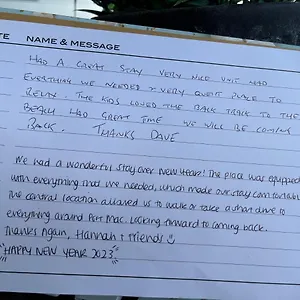 TE NAME & MESSAGE
HAD A GREAT STAY VERY NICE UNIT HAD
EVERTHING WE NEEDED & VERY QUIET PLACE TO
RELAX. THE KIDS LOVED THE BACK TRACK TO THE
BEACH HAD GREAT TIME WE WILL BE COMING
BACK. THANKS DAVE
We had a wonderful stay over new year! The place was equipped
with everything that we needed, which made our stay comfortable
The central location allowed us to walk or take a short drive to
everything around Port Mac. Looking forward to coming back.
Thanks again, Hannah + friends
"HAPPY NEW YEAR 2023"